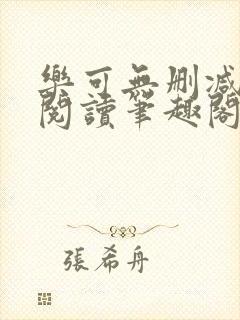 樂可無刪減
閱讀筆趣閣
張希舟